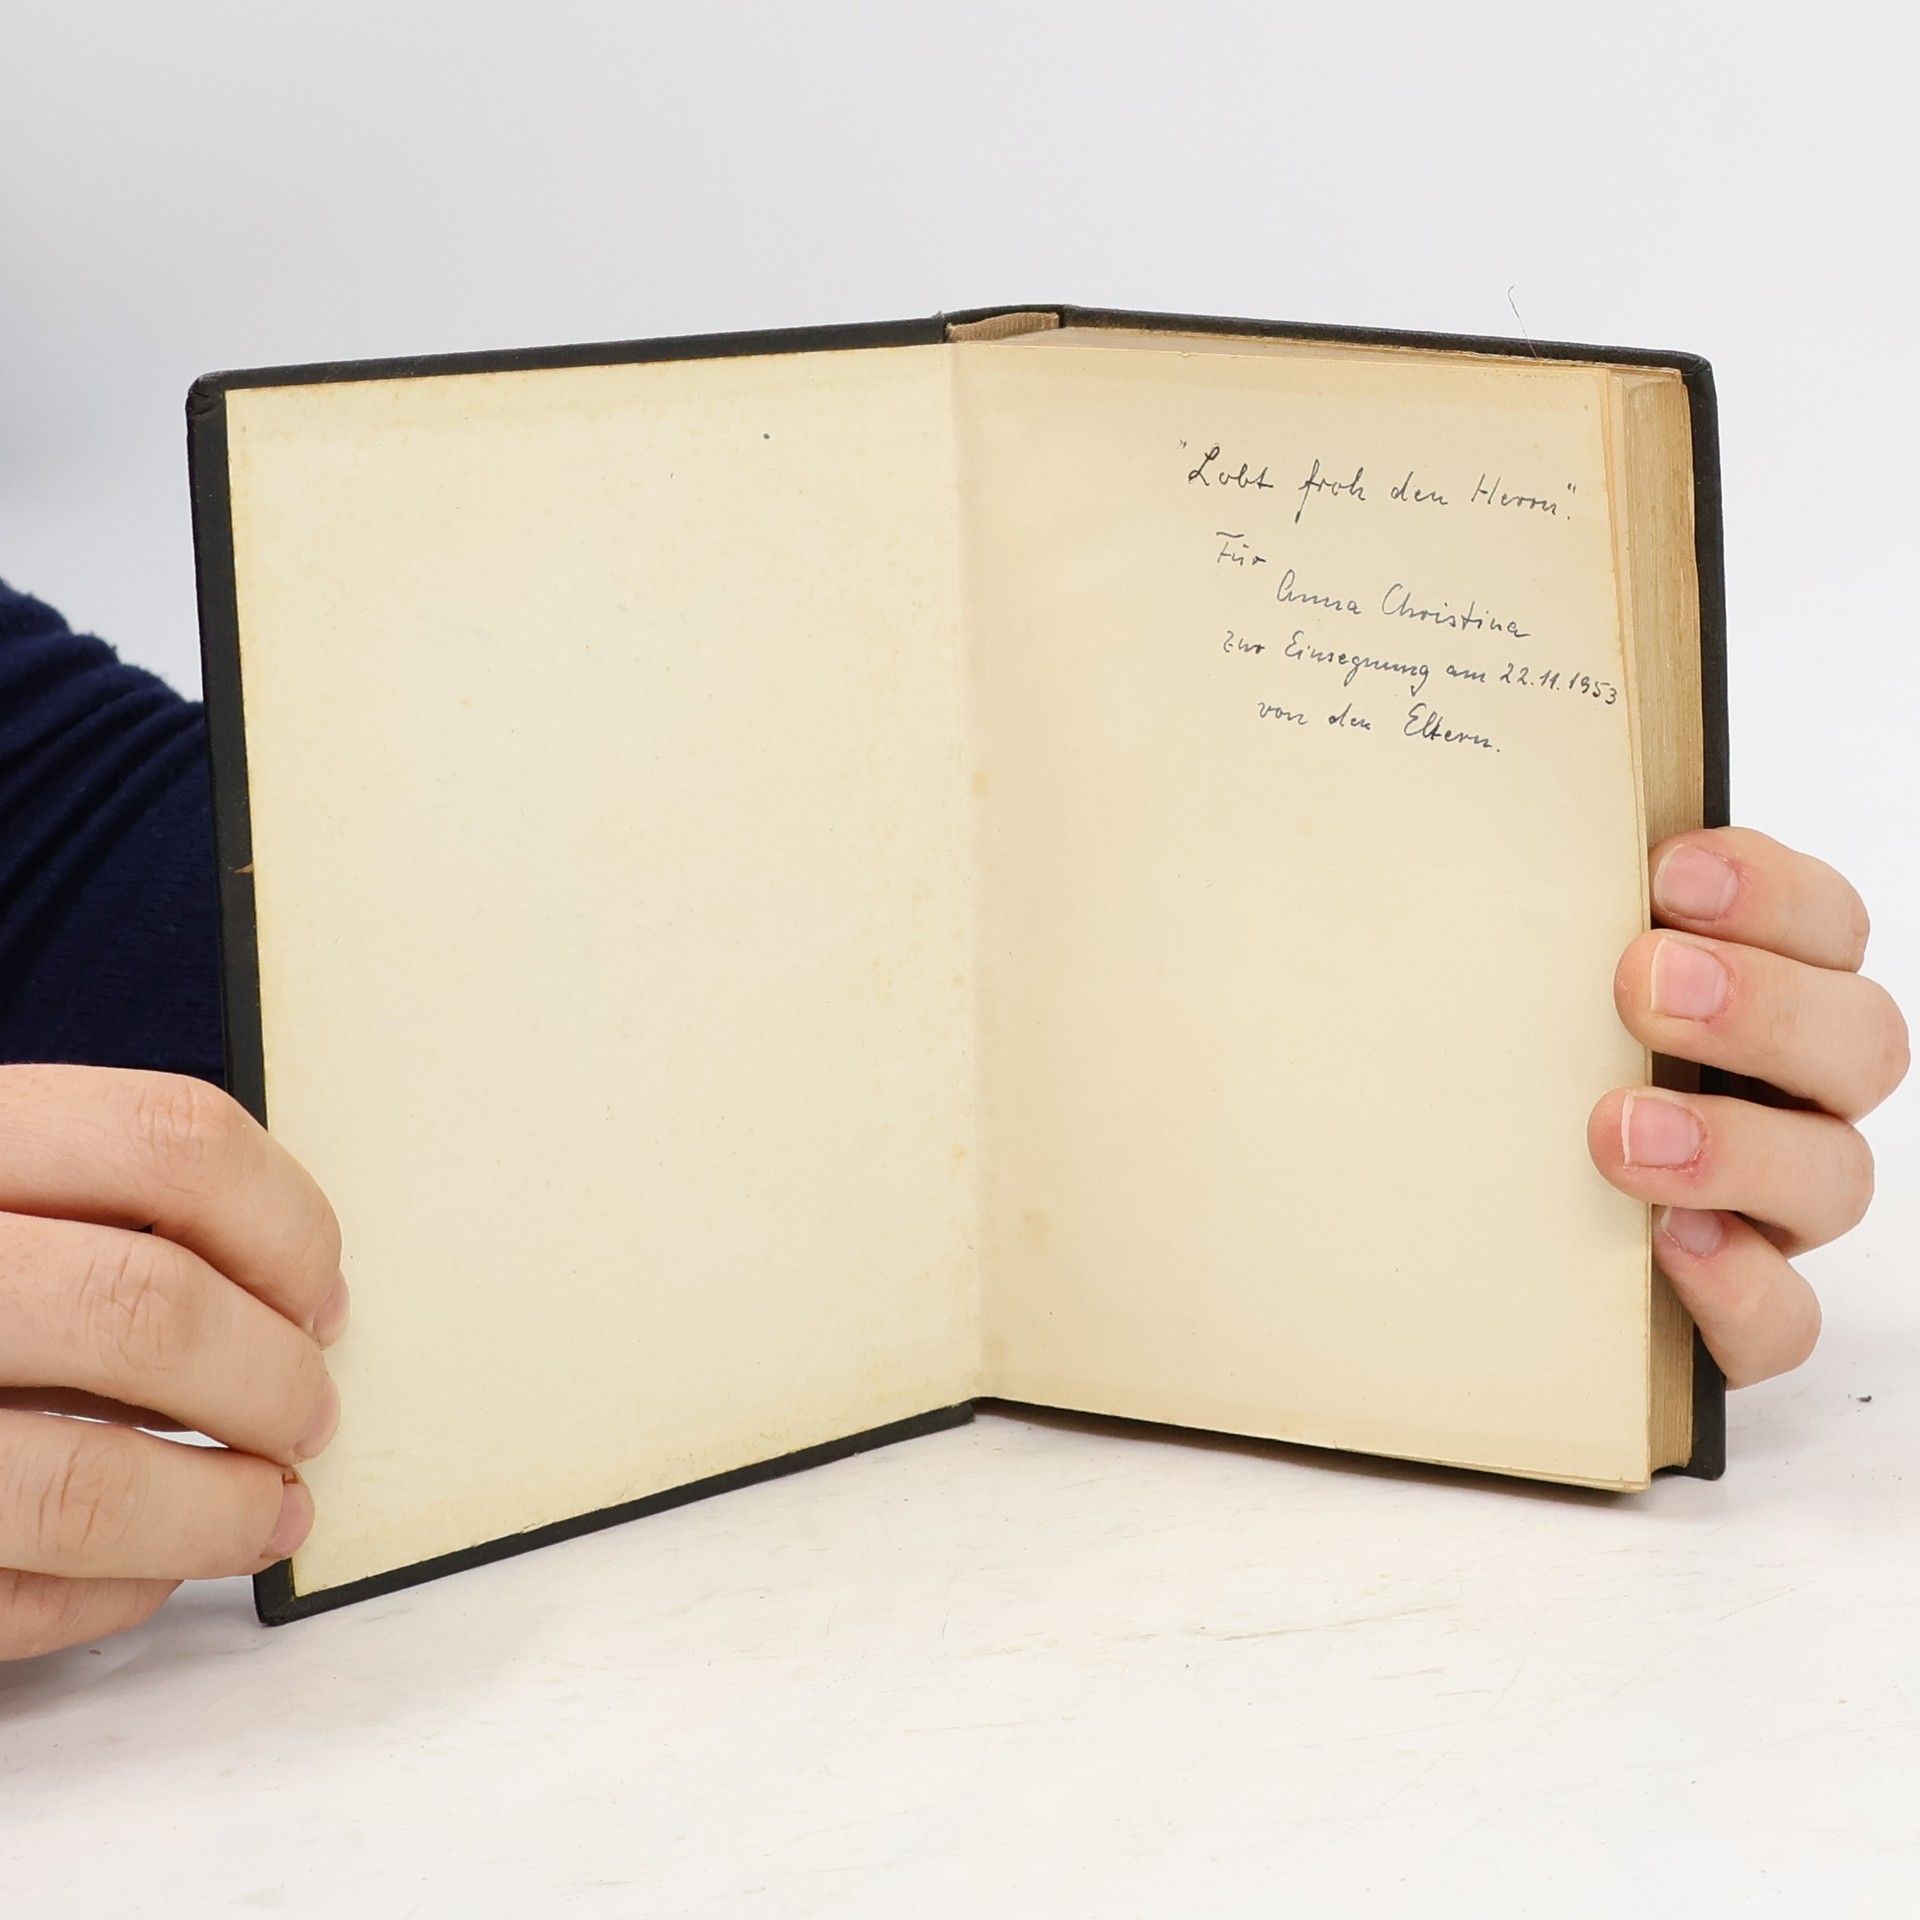 "Lobt froh den Herrn".
Für
Anna Christina
zur Einsegnung am 22.11.1953
von den Eltern.